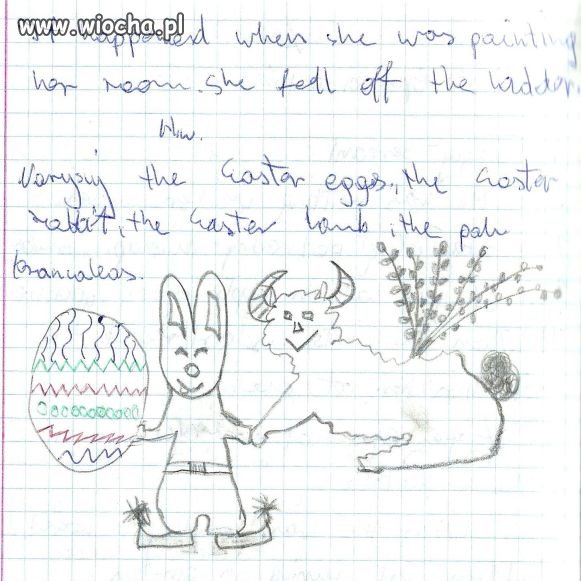 www.wiocha.pl
It happened when she was painting
her room. She fell off the ladder.
Hw.
Narysuj the Easter eggs, the Easter
rabbit, the Easter lamb, the palm